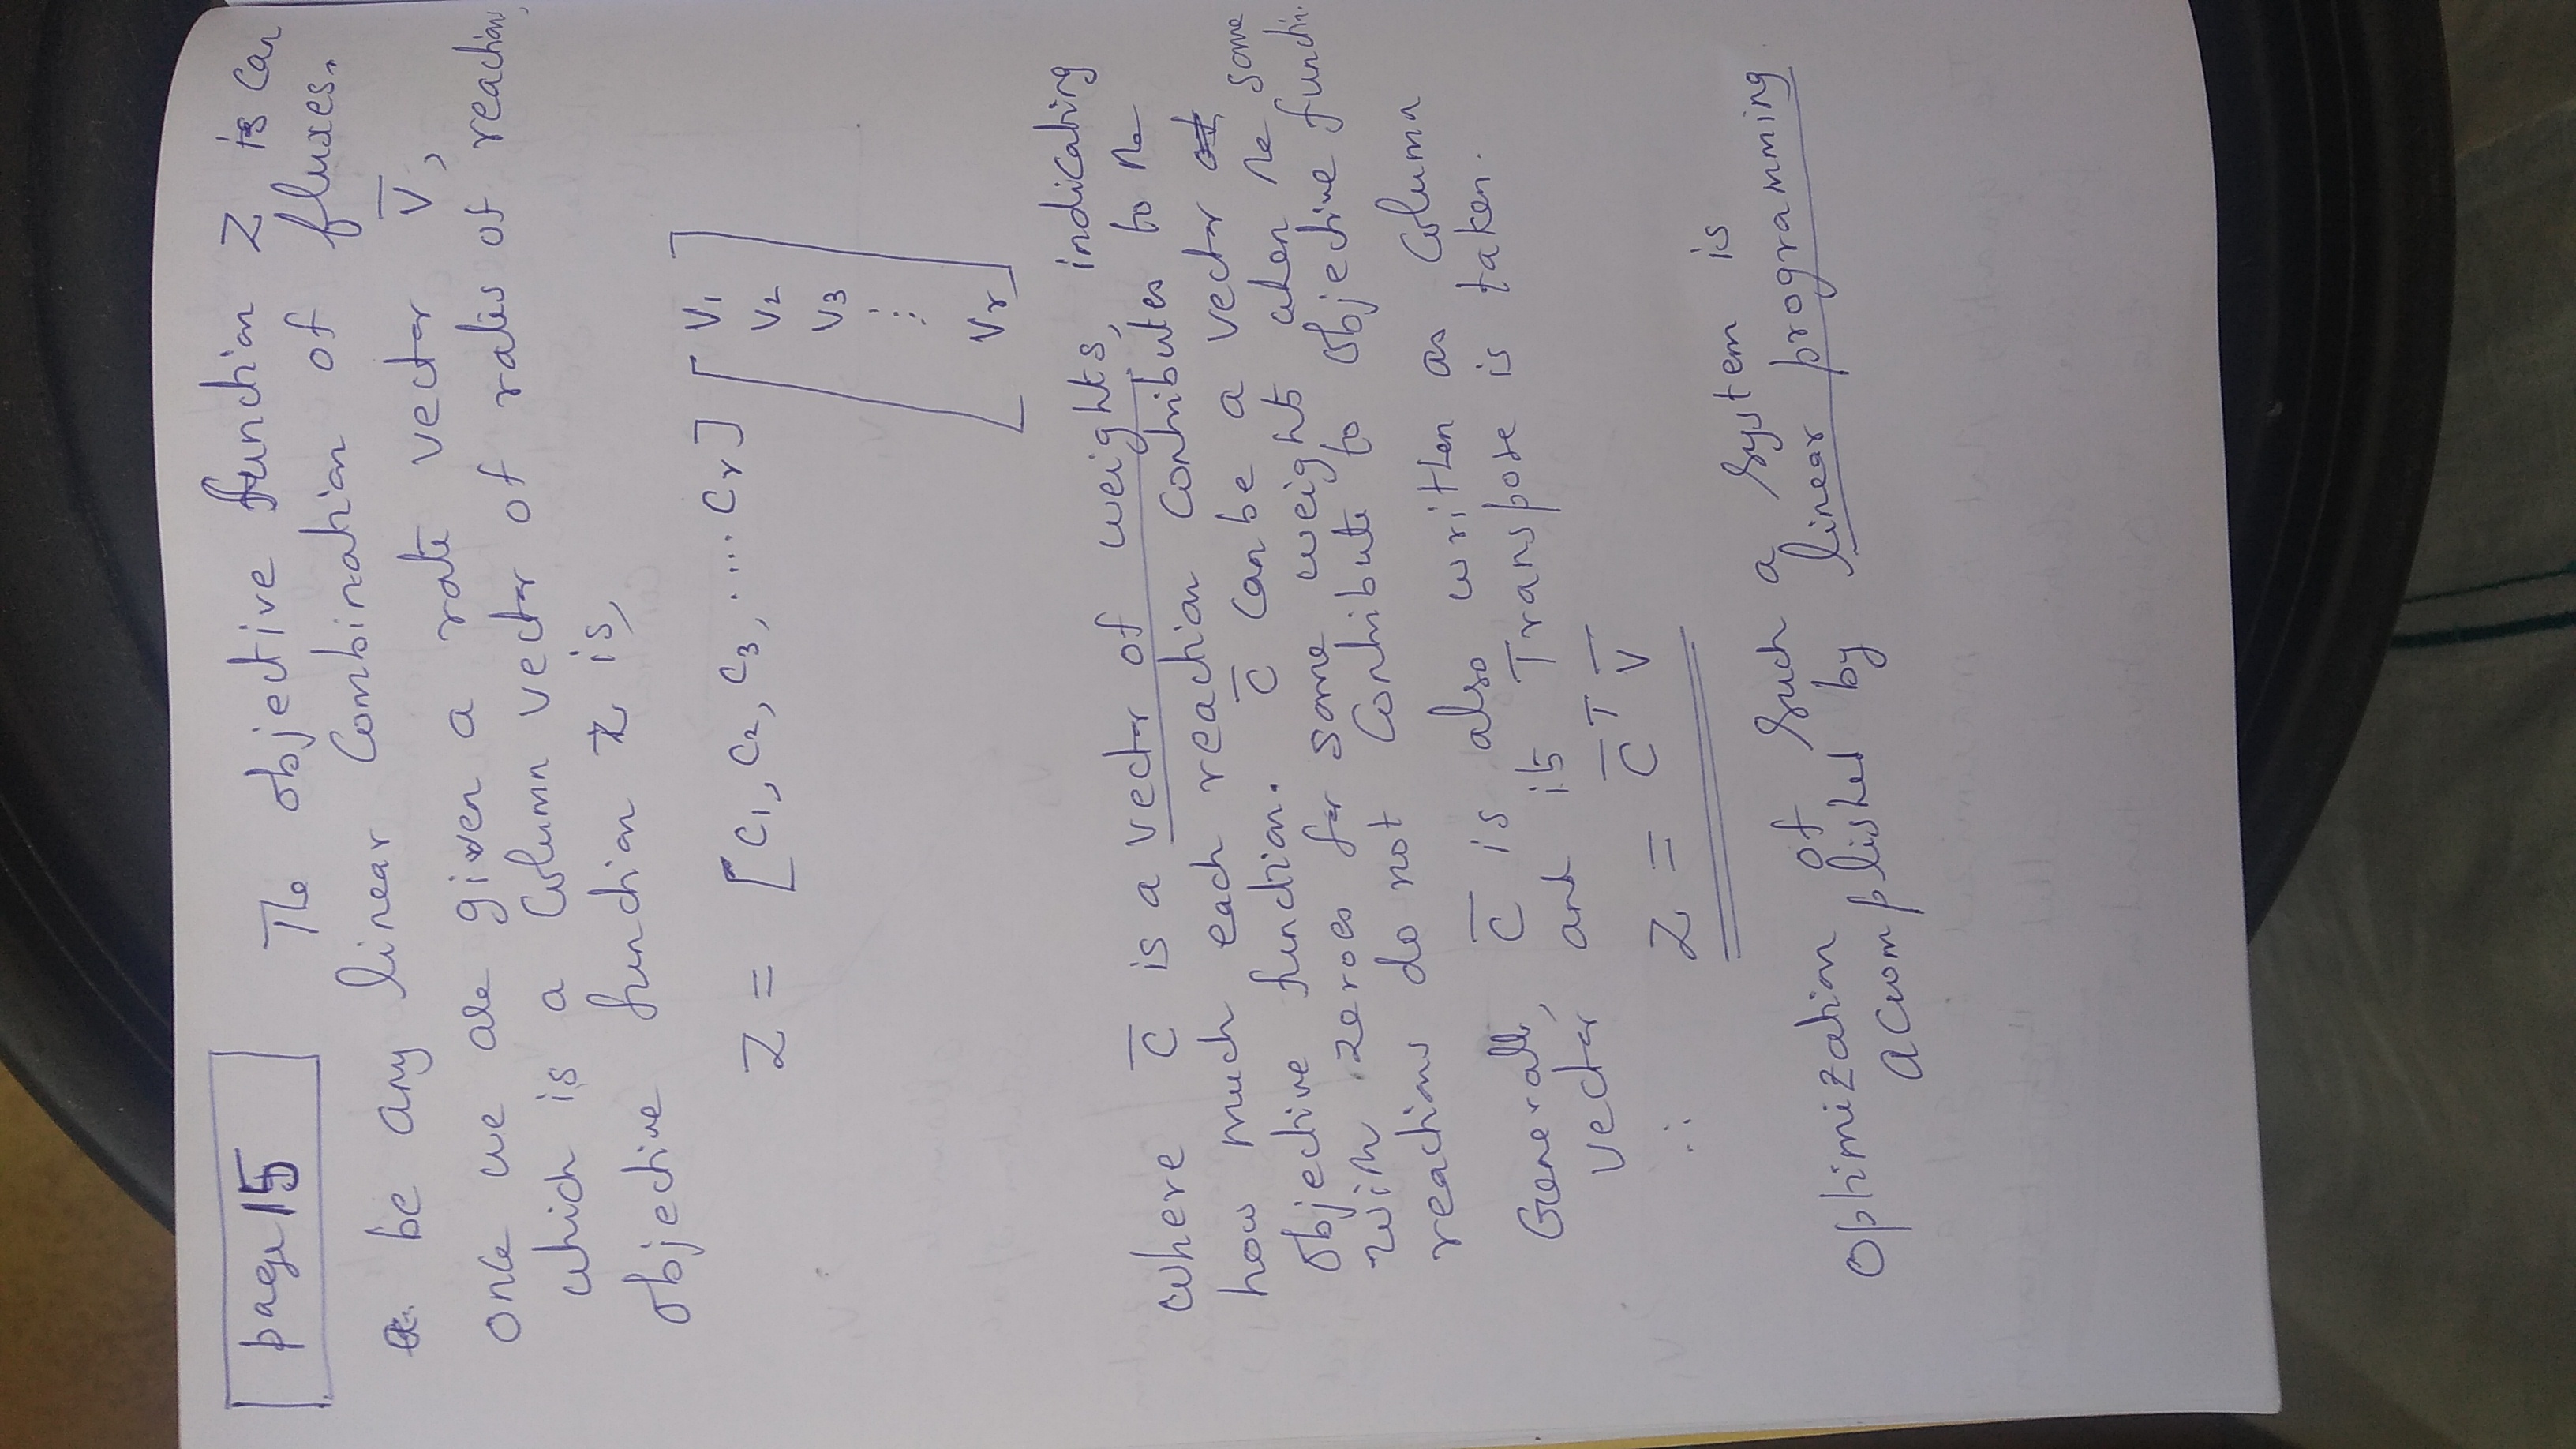 page 15
The objective function Z is can
a be any linear Combination of fluxes.
once we are given a rate vector V̅,
which is a Column vector of rates of reactions,
objective function Z is,
Z = [C₁, C₂, C₃, .... Cᵣ] [V₁
V₂
V₃
⋮
Vᵣ]
where C̅ is a vector of weights, indicating
how much each reaction Contributes to the
objective function. C̅ can be a vector of
with zeroes for some weights when the some
reactions do not Contribute to objective functi.
Generally, C̅ is also written as Column
vector and its Transpose is taken.
∴ Z = C̅ᵀ V̅
Optimization of such a system is
accomplished by linear programming